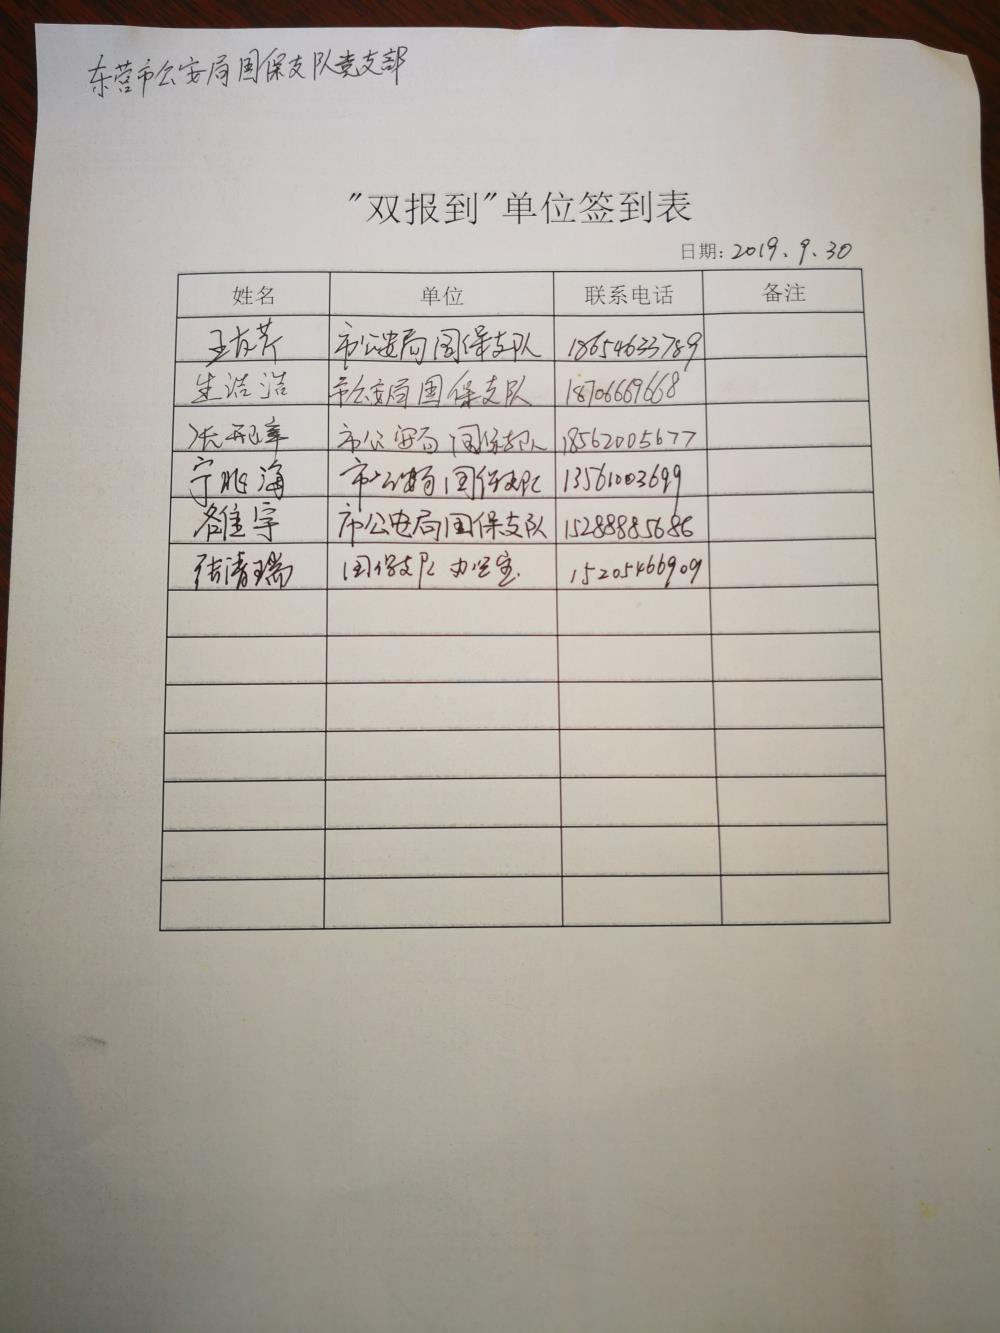 东营市公安局国保支队党支部
"双报到"单位签到表
日期：2019.9.30
姓名 单位 联系电话 备注
王友芹 市公安局国保支队 18654633789
生浩浩 市公安局国保支队 18706669668
市公安局国保支队 18562005677
宁兆海 市公安局国保支队 13561003699
宇 市公安局国保支队 15288885686
张清瑞 国保支队办公室 15205466909